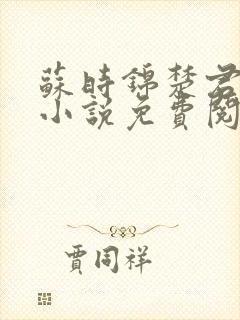 蘇時錦楚君
小說免費閱
賈同祥